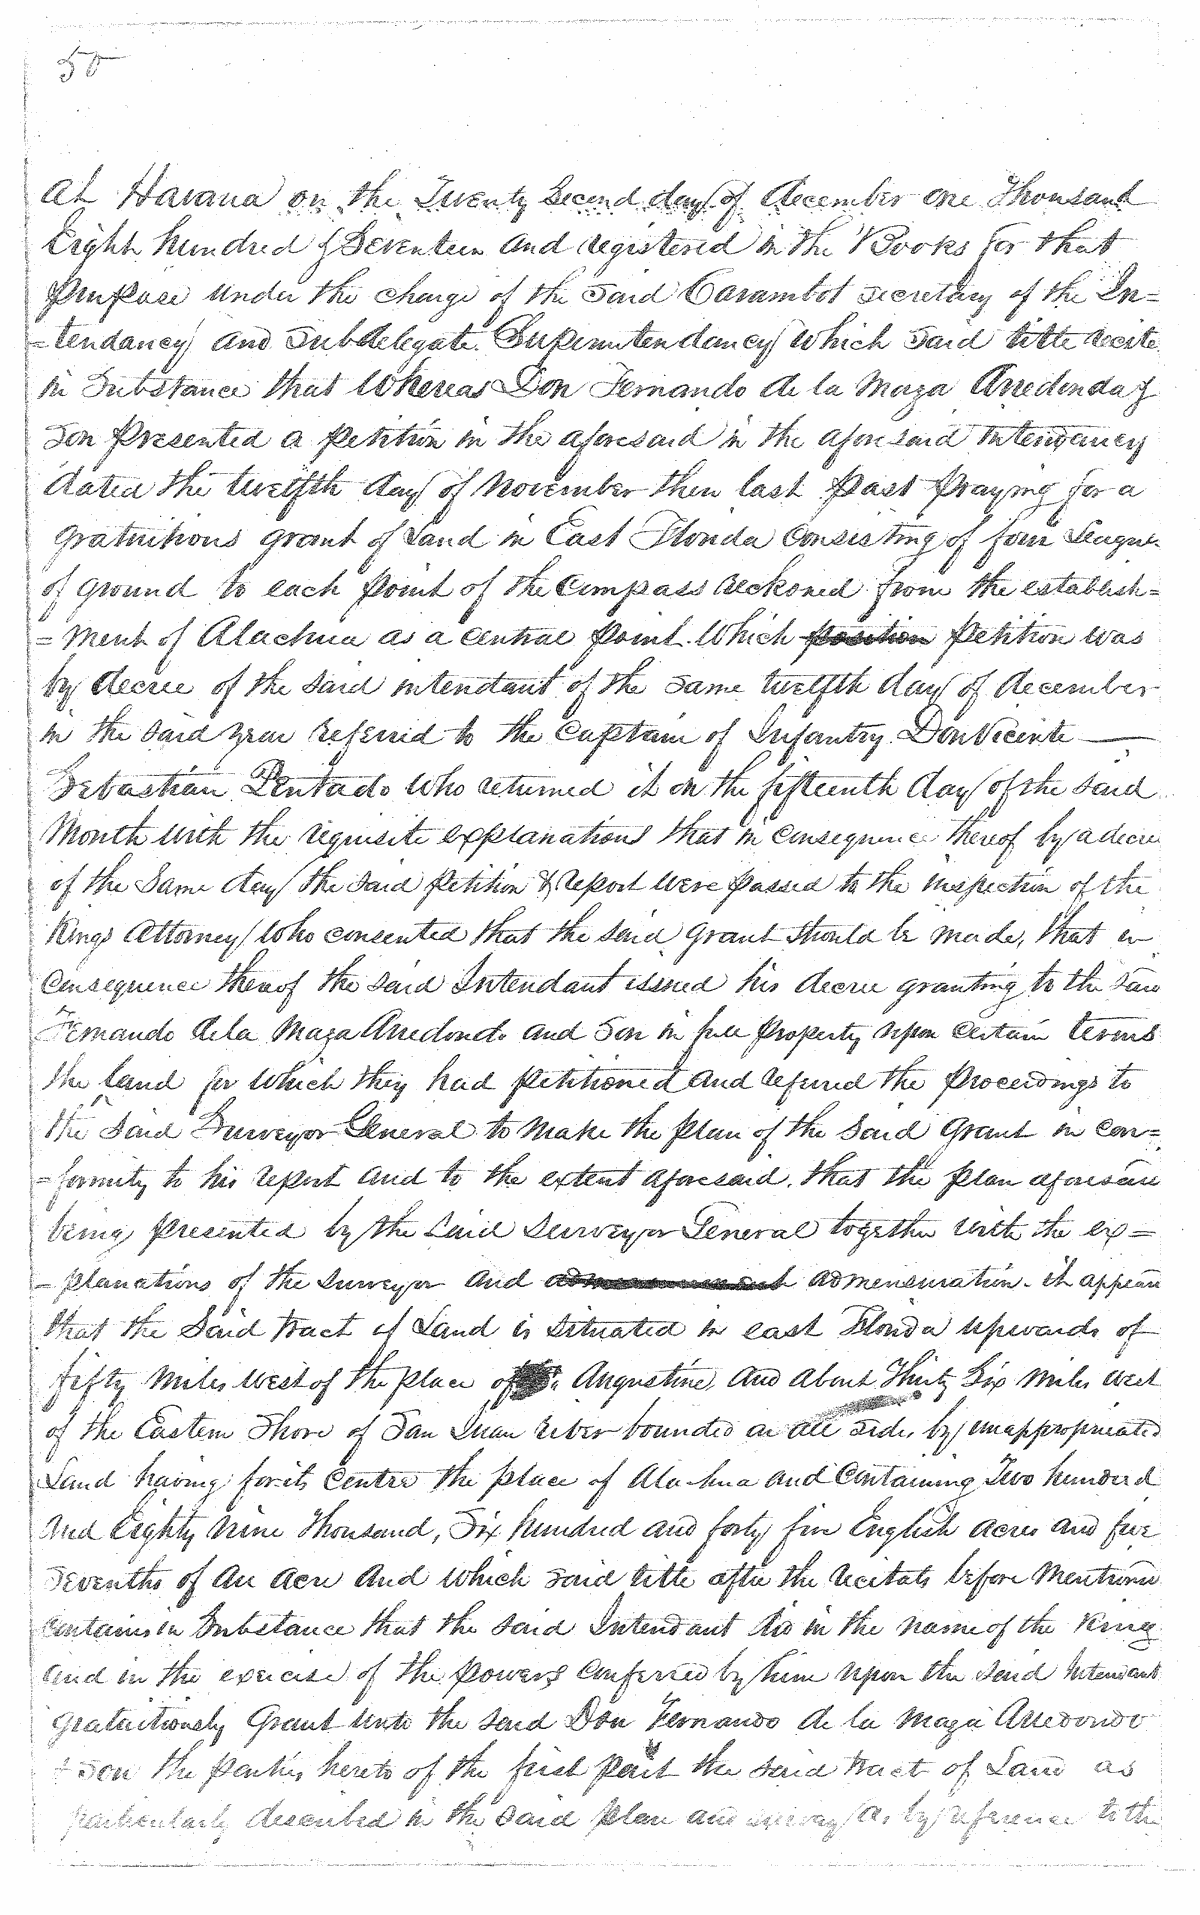 50
at Havana on the Twenty Second day of december one Thousand
Eight hundred & Seventeen and registered in the Books for that
purpose under the charge of the said Carambot secretary of the In=
=tendancy and Subdelegate Superintendancy which said title recite
in Substance that Whereas Don Fernando de la Maza Arredonda &
Son presented a petition in the aforesaid in the aforesaid intendancy
dated the twelfth day of November then last past praying for a
gratuitious grant of Land in East Florida consisting of four League
of ground to each point of the compass reckoned from the establish=
=ment of Alachua as a central point. Which position petition was
by decree of the said intendant of the same twelfth day of december
in the said year referred to the captain of Infantry Don Vicente
Sebastian Pentado who returned it on the fifteenth day of the said
Month with the requisite explanations that in consequence thereof by a decree
of the Same day the said petition & report were passed to the inspection of the
Kings Attorney who consented that the said grant should be made, that in
consequence thereof the said Intendant issued his decree granting to the said
Fernando de la Maza Arredondo and Son in free property upon certain terms
the land for which they had petitioned and referred the proceedings to
the said Surveyor General to make the plan of the said grant in con=
=formity to his report and to the extent aforesaid. that the plan aforesaid
being presented by the said Surveyor General together with the ex=
=planations of the surveyor and admensuration. it appear
that the said tract of Land is situated in east Florida upwards of
fifty miles west of the place of Augustine, and about Thirty Six miles west
of the Eastern Shore of San Juan river bounded on all sides by unappropriated
Land having for its centre the place of Alachua and containing Two hundred
and Eighty nine thousand, Six hundred and forty five English acres and five
sevenths of an acre and which said title after the recitals before mentioned
contains in Substance that the said Intendant did in the name of the King
and in the exercise of the powers conferred by him upon the said Intendant
gratuitiously Grant unto the said Don Fernando de la Maza Arredondo
& Son the parties hereto of the first part the said tract of Land as
particularly described in the said plan and survey as by reference to the